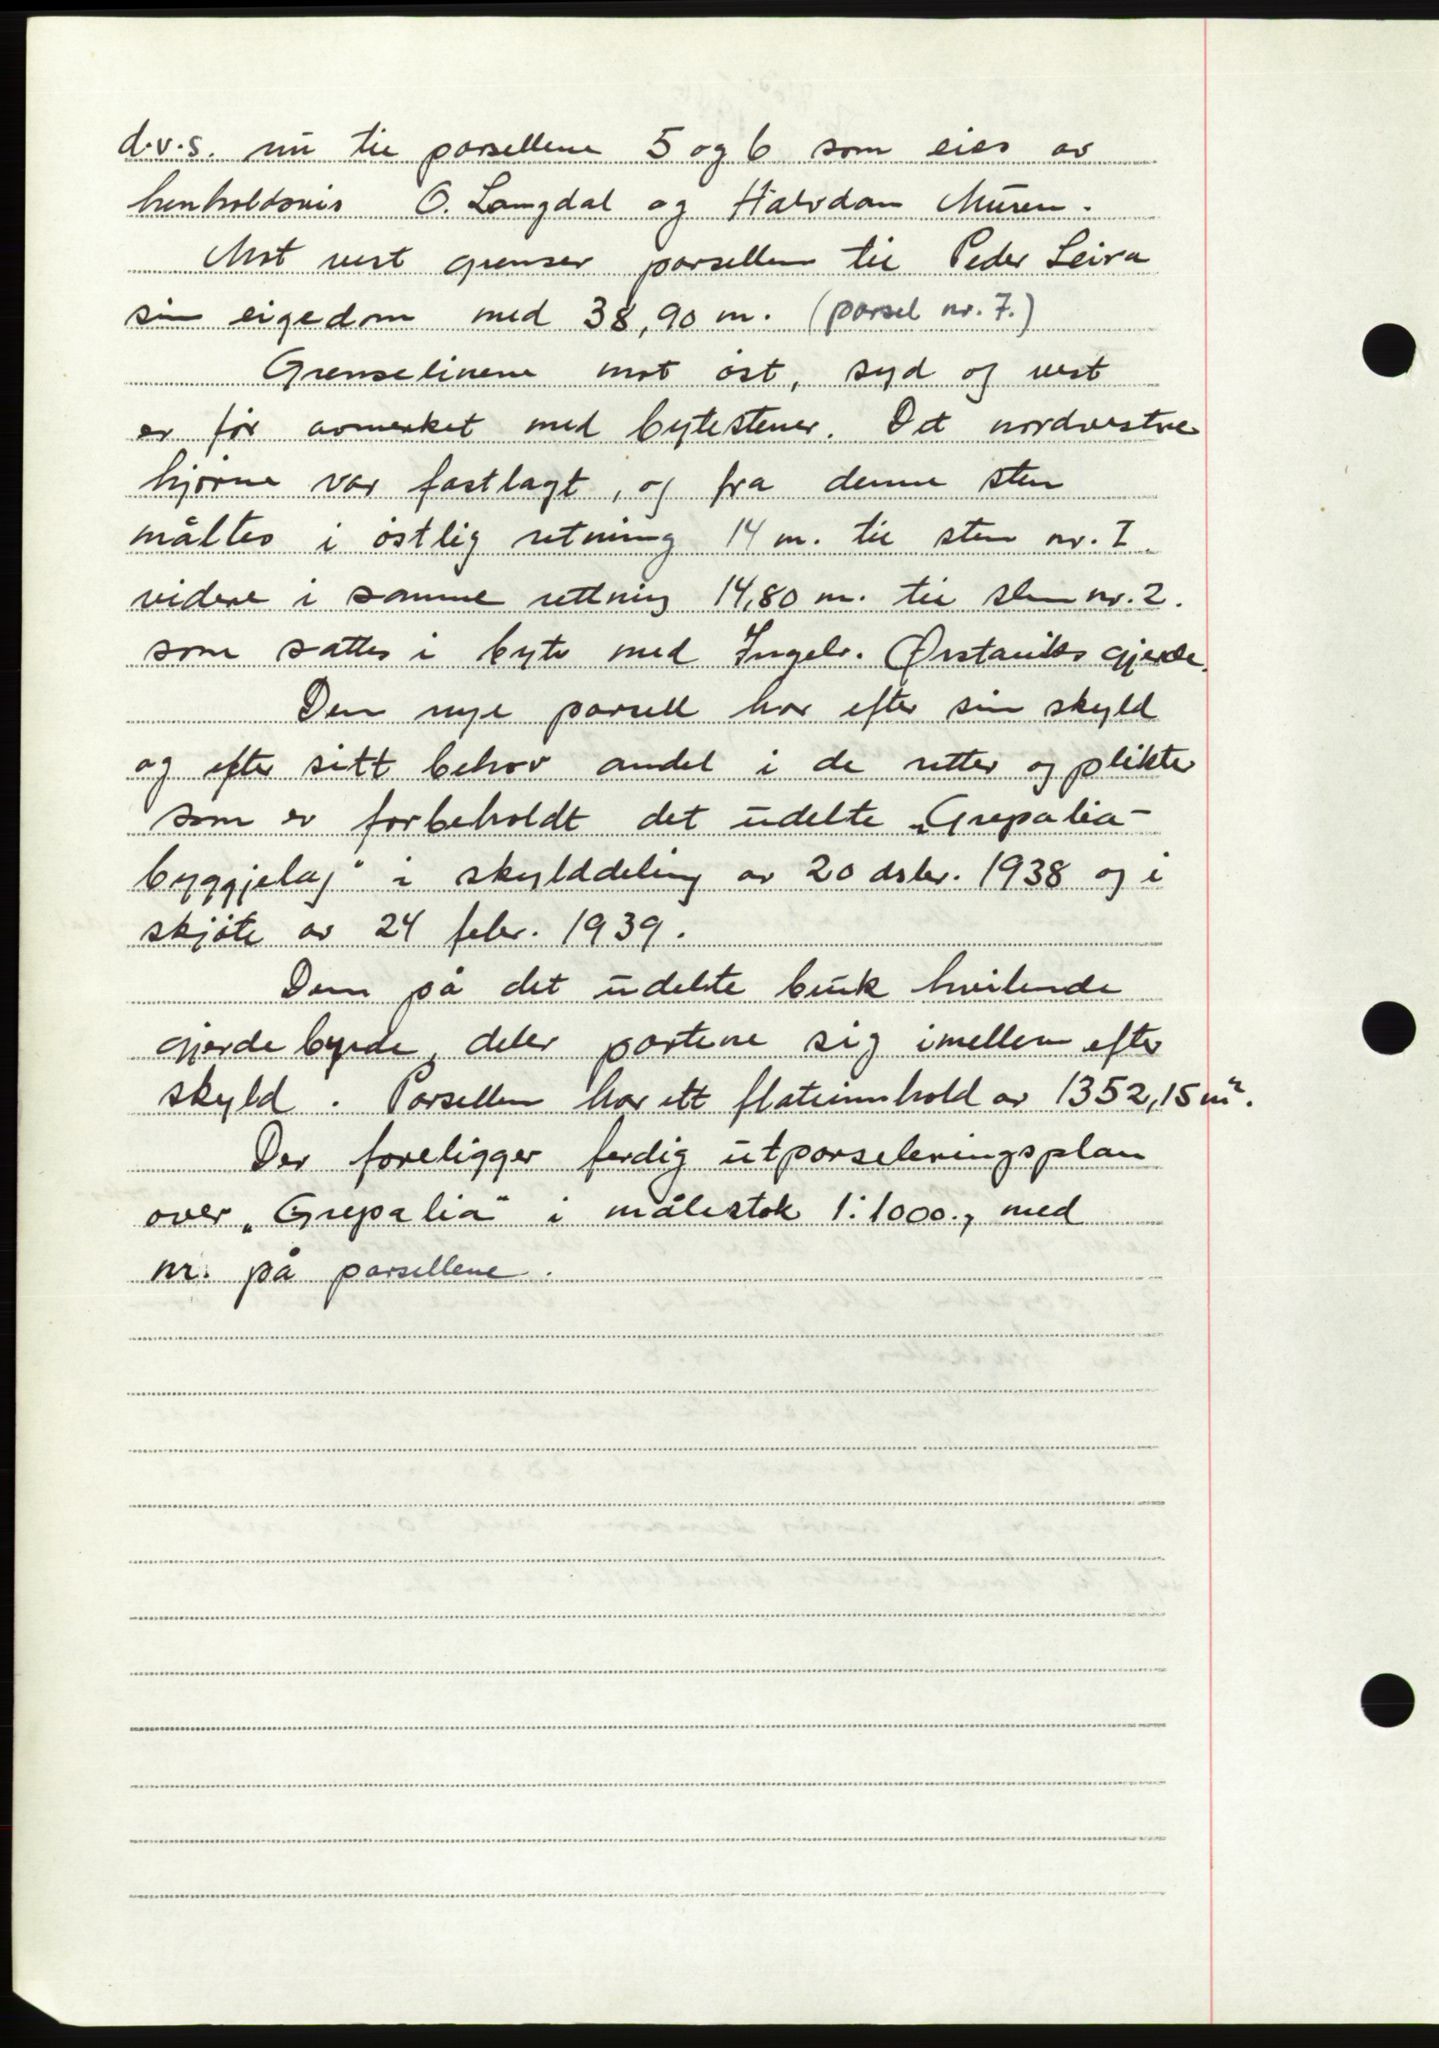 d.v.s. nu til parsellene 5 og 6 som eies av
henholdsvis O. Langdal og Halvdan Muren.
Mot vest grenser parsellen til Peder Leira
sin eigedom med 38,90 m. (parsel nr. 7.)
Grenselinene mot öst, syd og vest
er för avmerket med bytestener. Det nordvestre
hjörne var fastlagt, og fra denne sten
måltes i östlig retning 14 m. til sten nr. I
videre i samme rettning 14,80 m. til sten nr. 2.
som sattes i byte med Ingebr. Ørstaviks gjerde.
Den nye parsell har efter sin skyld
og efter sitt behov andel i de retter og plikter
som er forbeholdt det udelte „Grepalia-
byggjelag" i skylddeling av 20 dsbr. 1938 og i
skjöte av 24 febr. 1939.
Den på det udelte bruk hvilende
gjerde byrde, deler partene sig imellem efter
skyld. Parsellen har ett flateinnhold av 1352,15 m².
Der foreligger ferdig utparseleringsplan
over „Grepalia" i målestok 1:1000., med
nr. på parsellene.